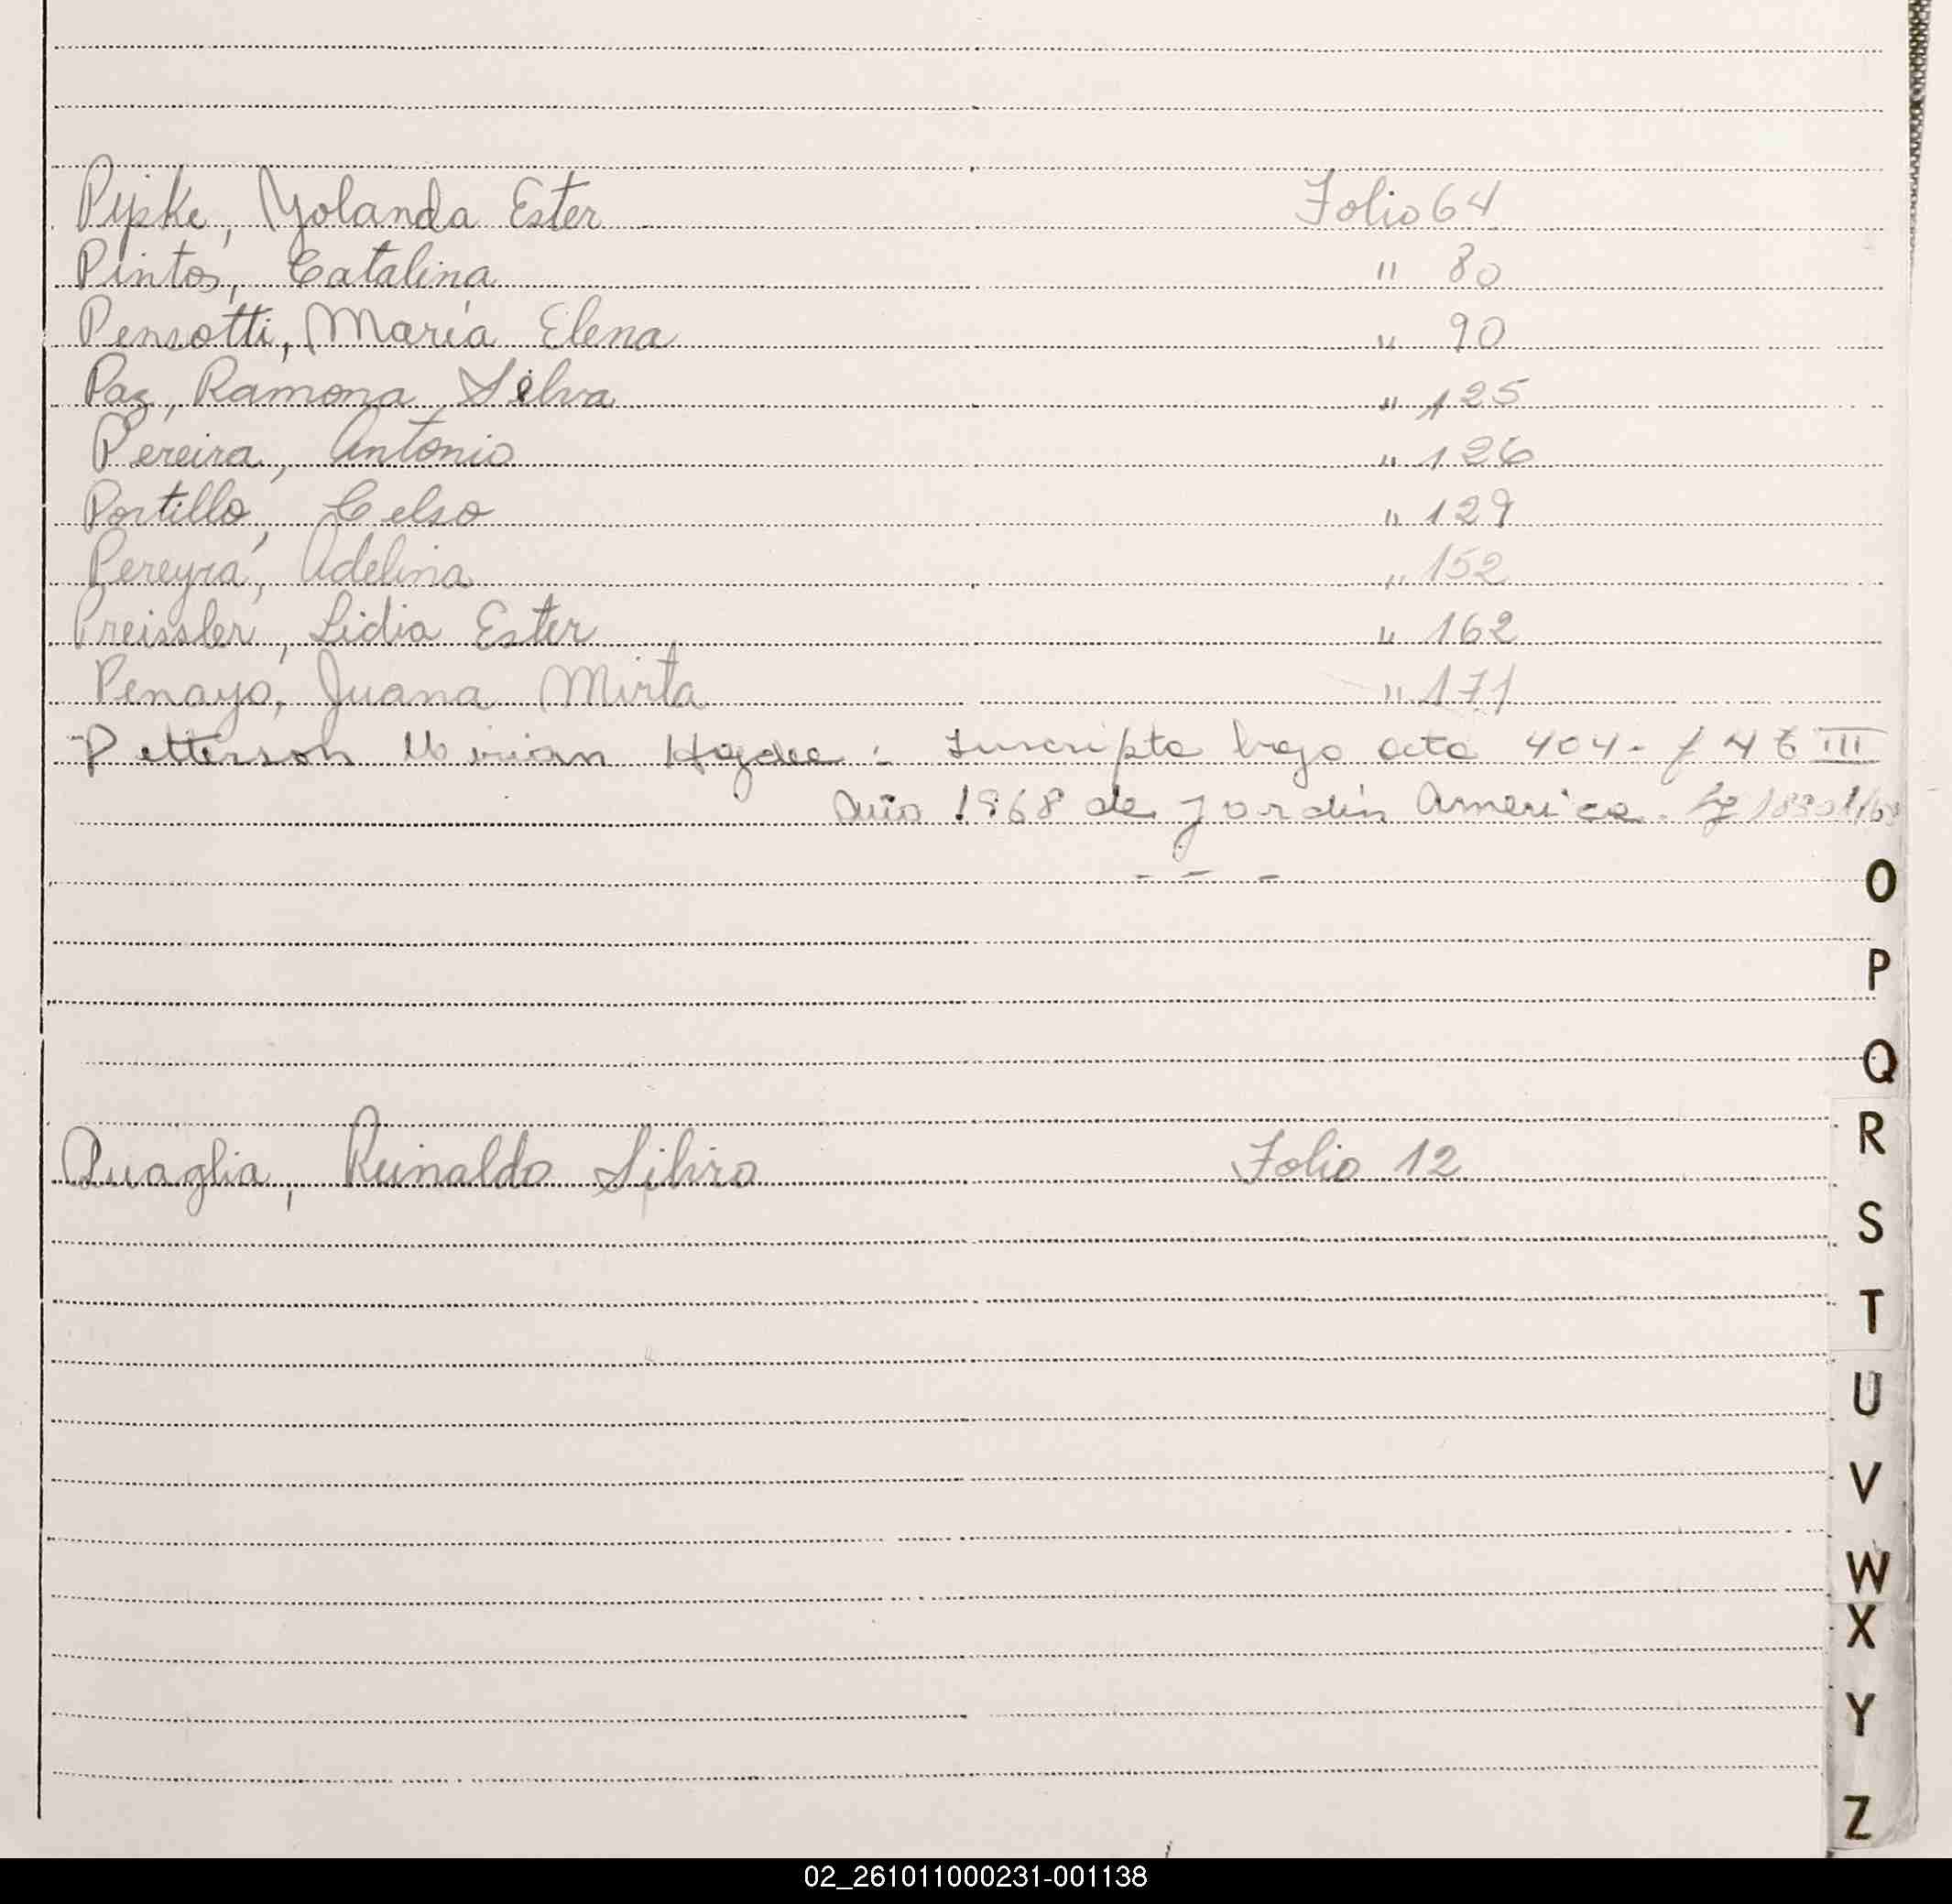 Pipke, Yolanda Ester Folio 64
Pintos, Catalina " 80
Pensotti, María Elena " 90
Paz, Ramona Silva " 125
Pereira, Antonio " 126
Portillo, Celso " 129
Pereyra, Adelina " 152
Preissler, Lidia Ester " 162
Penayo, Juana Mirta " 171
Petterson Mirian Haydee: Inscripta bajo acta 404- f 4 t III
Año 1968 de Jardín America.
O
P
Q
Quaglia, Reinaldo Silvio Folio 12
R
S
T
U
V
W
X
Y
Z
02_261011000231-001138